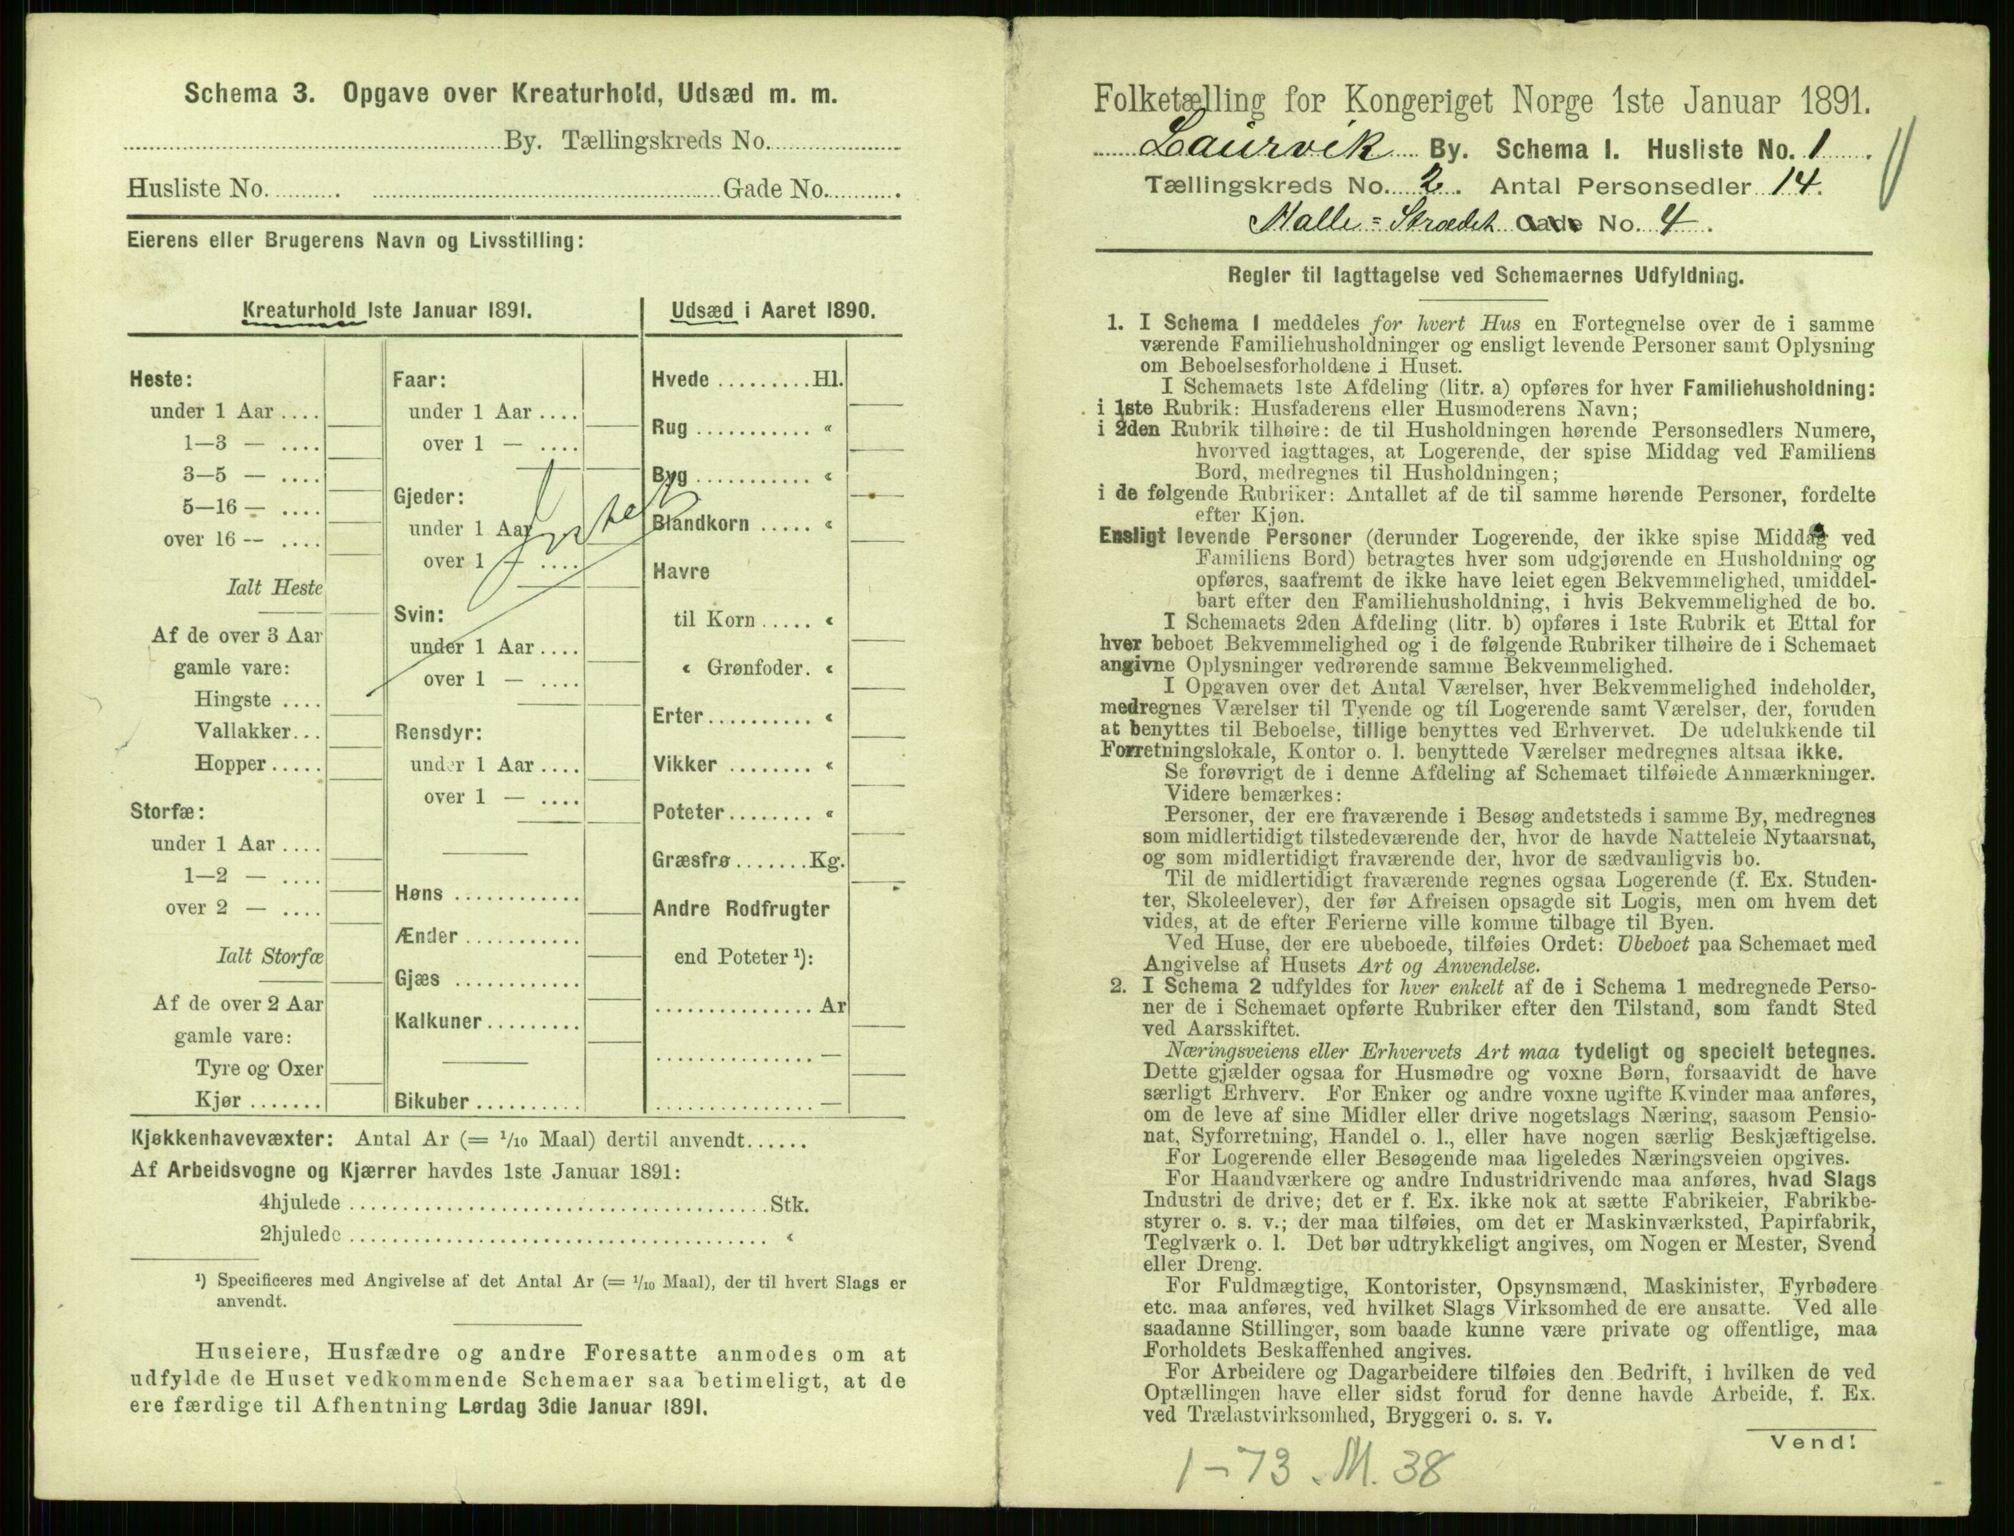 Schema 3. Opgave over Kreaturhold, Udsæd m. m.
By. Tællingskreds No.
Husliste No. Gade No.
Eierens eller Brugerens Navn og Livsstilling:
Kreaturhold 1ste Januar 1891.
Heste:
under 1 Aar
1—3 —
3—5 —
5—16 —
over 16 —
Ialt Heste
Af de over 3 Aar
gamle vare:
Hingste
Vallakker
Hopper
Storfæ:
under 1 Aar
1—2 —
over 2 —
Ialt Storfæ
Af de over 2 Aar
gamle vare:
Tyre og Oxer
Kjør
Faar:
under 1 Aar
over 1 —
Gjeder:
under 1 Aar
over 1 —
Intet
Svin:
under 1 Aar
over 1 —
Rensdyr:
under 1 Aar
over 1 —
Høns
Ænder
Gjæs
Kalkuner
Bikuber
Udsæd i Aaret 1890.
Hvede Hl.
Rug "
Byg "
Blandkorn "
Havre
til Korn "
" Grønfoder. "
Erter "
Vikker "
Poteter "
Græsfrø Kg.
Andre Rodfrugter
end Poteter ¹):
Ar
—
—
Kjøkkenhavevæxter: Antal Ar (= 1/10 Maal) dertil anvendt
Af Arbeidsvogne og Kjærrer havdes 1ste Januar 1891:
4hjulede Stk.
2hjulede "
¹) Specificeres med Angivelse af det Antal Ar (= 1/10 Maal), der til hvert Slags er
anvendt.
Huseiere, Husfædre og andre Foresatte anmodes om at
udfylde de Huset vedkommende Schemaer saa betimeligt, at de
ere færdige til Afhentning Lørdag 3die Januar 1891.
Folketælling for Kongeriget Norge 1ste Januar 1891.
Laurvik By. Schema I. Husliste No. 1
Tællingskreds No. 2. Antal Personsedler 14.
Malle=Strædet Gade No. 4.
Regler til Iagttagelse ved Schemaernes Udfyldning.
1. I Schema 1 meddeles for hvert Hus en Fortegnelse over de i samme
værende Familiehusholdninger og ensligt levende Personer samt Oplysning
om Beboelsesforholdene i Huset.
I Schemaets 1ste Afdeling (litr. a) opføres for hver Familiehusholdning:
i 1ste Rubrik: Husfaderens eller Husmoderens Navn;
i 2den Rubrik tilhøire: de til Husholdningen hørende Personsedlers Numere,
hvorved iagttages, at Logerende, der spise Middag ved Familiens
Bord, medregnes til Husholdningen;
i de følgende Rubriker: Antallet af de til samme hørende Personer, fordelte
efter Kjøn.
Ensligt levende Personer (derunder Logerende, der ikke spise Middag ved
Familiens Bord) betragtes hver som udgjørende en Husholdning og
opføres, saafremt de ikke have leiet egen Bekvemmelighed, umiddel-
bart efter den Familiehusholdning, i hvis Bekvemmelighed de bo.
I Schemaets 2den Afdeling (litr. b) opføres i 1ste Rubrik et Ettal for
hver beboet Bekvemmelighed og i de følgende Rubriker tilhøire de i Schemaet
angivne Oplysninger vedrørende samme Bekvemmelighed.
I Opgaven over det Antal Værelser, hver Bekvemmelighed indeholder,
medregnes Værelser til Tyende og til Logerende samt Værelser, der, foruden
at benyttes til Beboelse, tillige benyttes ved Erhvervet. De udelukkende til
Forretningslokale, Kontor o. l. benyttede Værelser medregnes altsaa ikke.
Se forøvrigt de i denne Afdeling af Schemaet tilføiede Anmærkninger.
Videre bemærkes:
Personer, der ere fraværende i Besøg andetsteds i samme By, medregnes
som midlertidigt tilstedeværende der, hvor de havde Natteleie Nytaarsnat,
og som midlertidigt fraværende der, hvor de sædvanligvis bo.
Til de midlertidigt fraværende regnes ogsaa Logerende (f. Ex. Studen-
ter, Skoleelever), der før Afreisen opsagde sit Logis, men om hvem det
vides, at de efter Ferierne ville komme tilbage til Byen.
Ved Huse, der ere ubeboede, tilføies Ordet: Ubeboet paa Schemaet med
Angivelse af Husets Art og Anvendelse.
2. I Schema 2 udfyldes for hver enkelt af de i Schema 1 medregnede Perso-
ner de i Schemaet opførte Rubriker efter den Tilstand, som fandt Sted
ved Aarsskiftet.
Næringsveiens eller Erhvervets Art maa tydeligt og specielt betegnes.
Dette gjælder ogsaa for Husmødre og voxne Børn, forsaavidt de have
særligt Erhverv. For Enker og andre voxne ugifte Kvinder maa anføres,
om de leve af sine Midler eller drive nogetslags Næring, saasom Pensio-
nat, Syforretning, Handel o. l., eller have nogen særlig Beskjæftigelse.
For Logerende eller Besøgende maa ligeledes Næringsveien opgives.
For Haandværkere og andre Industridrivende maa anføres, hvad Slags
Industri de drive; det er f. Ex. ikke nok at sætte Fabrikeier, Fabrikbe-
styrer o. s. v.; der maa tilføies, om det er Maskinværksted, Papirfabrik,
Teglværk o. l. Det bør udtrykkeligt angives, om Nogen er Mester, Svend
eller Dreng.
For Fuldmægtige, Kontorister, Opsynsmænd, Maskinister, Fyrbødere
etc. maa anføres, ved hvilket Slags Virksomhed de ere ansatte. Ved alle
saadanne Stillinger, som baade kunne være private og offentlige, maa
Forholdets Beskaffenhed angives.
For Arbeidere og Dagarbeidere tilføies den Bedrift, i hvilken de ved
Optællingen have eller sidst forud for denne havde Arbeide, f. Ex.
ved Trælastvirksomhed, Bryggeri o. s. v.
Vend!
1-73. M. 38